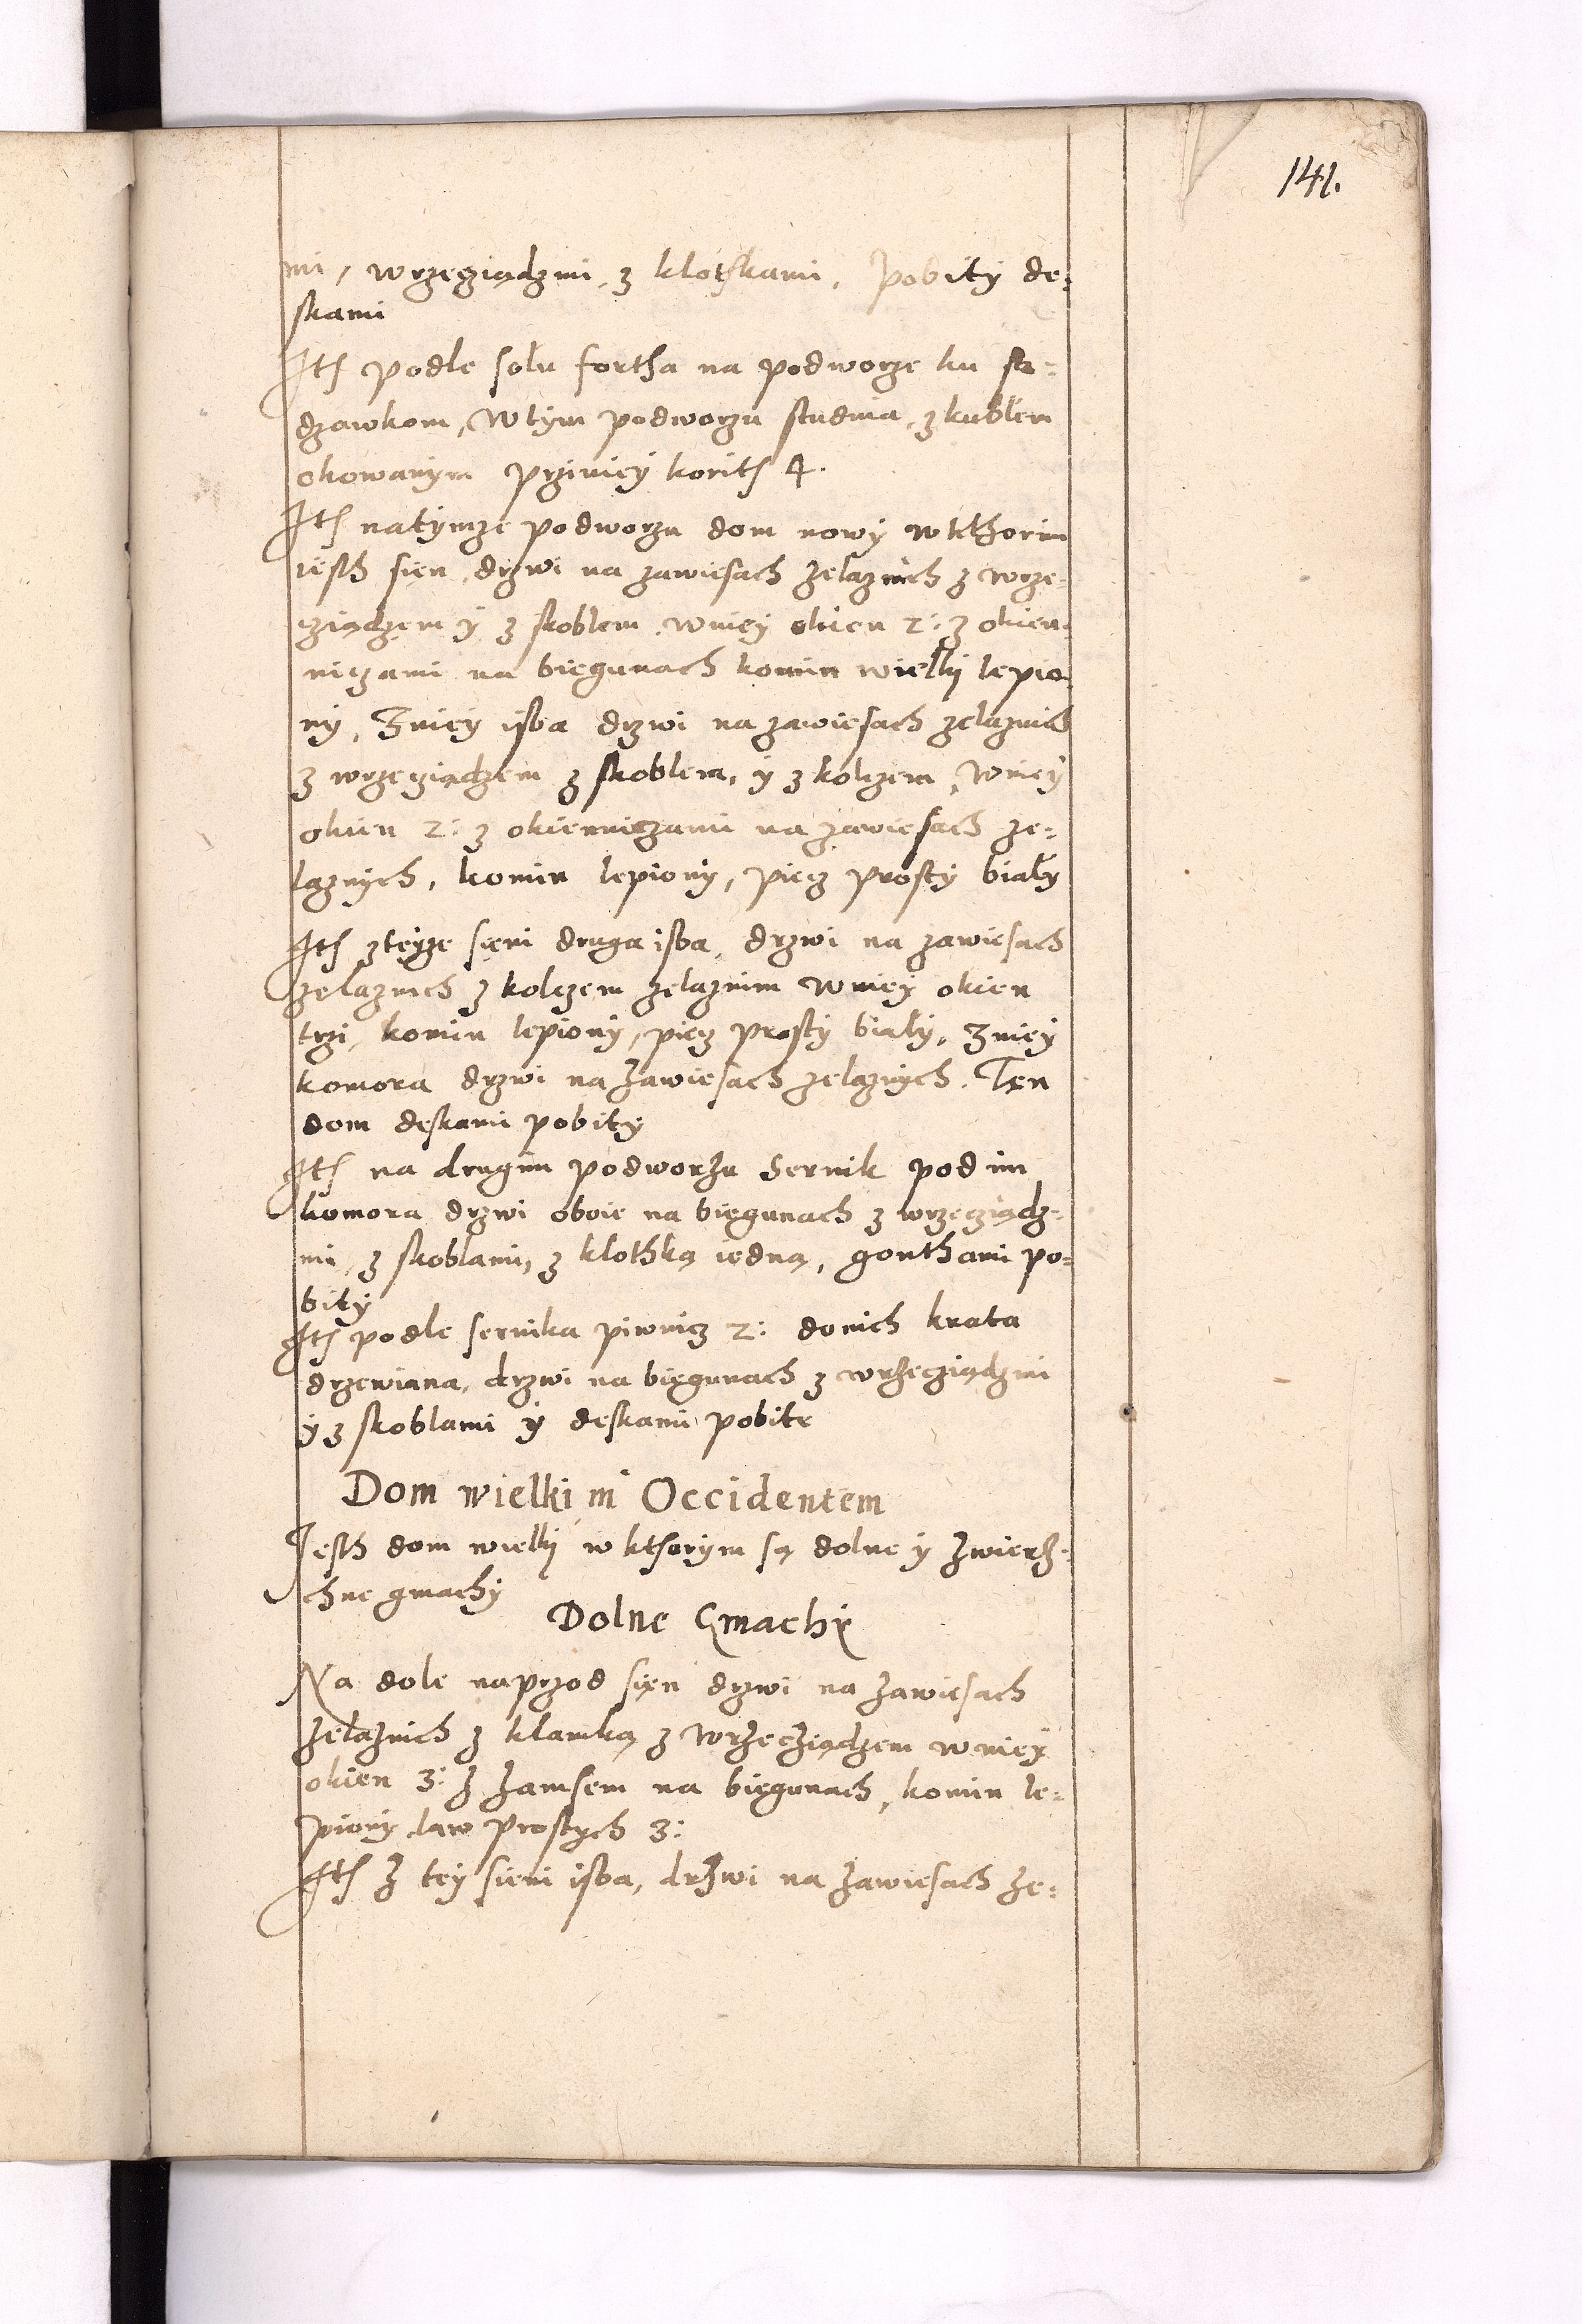 141.
mi, wrzeziądzmi, z klothkami, pobity de-
skami
Ith podle solu fortha na podworze ku sa-
dzawkom, Wtym podworzu studnia, z kublem
okowanym prziniey korith 4.
Ith natymze podworzu dom nowy wkthorim
iesth sien, drzwi na zawiesach zelaznich z wrze-
cziądzem y z skoblem, wniey okien 2: z okien-
niczami na biegunach komin wielki lepio-
ny, Zniey isba drzwi na zawiesach zelaznich
z wrzecziądzem z skoblem, y z kolczem, wniey
okien 2: z okienniczami na zawiesach ze-
laznych, komin lepiony, piecz prosty biały
Ith zteyze sieni druga isba, drzwi na zawiesach
zelaznich z kolczem zelaznim wniey okien
trzi, komin lepiony, piecz prosty biały, Zniey
komora drzwi na zawiesach zelaznych. Ten
dom deskami pobity
Ith na drugim podworzu Sernik pod im
komora drzwi oboie na biegunach z wrzecziądz-
mi, z skoblami, z klothką iedną, gonthami po-
bity
Ith podle sernika piwnicz 2: donich krata
drzewiana, drzwi na biegunach z wrzecziądzmi
y z skoblami y deskami pobite
Dom wielki in Occidentem
Jesth dom wielki w kthorym są dolne y zwierz-
chne gmachy
Dolne Gmachy
Na dole naprzod sien drzwi na zawiesach
zelaznich z klamką z wrzecziądzem w niey
okien 3: z zamsem na biegunach, komin le-
piony law prostych 3:
Ith z tey sieni isba, drzwi na zawiesach ze-